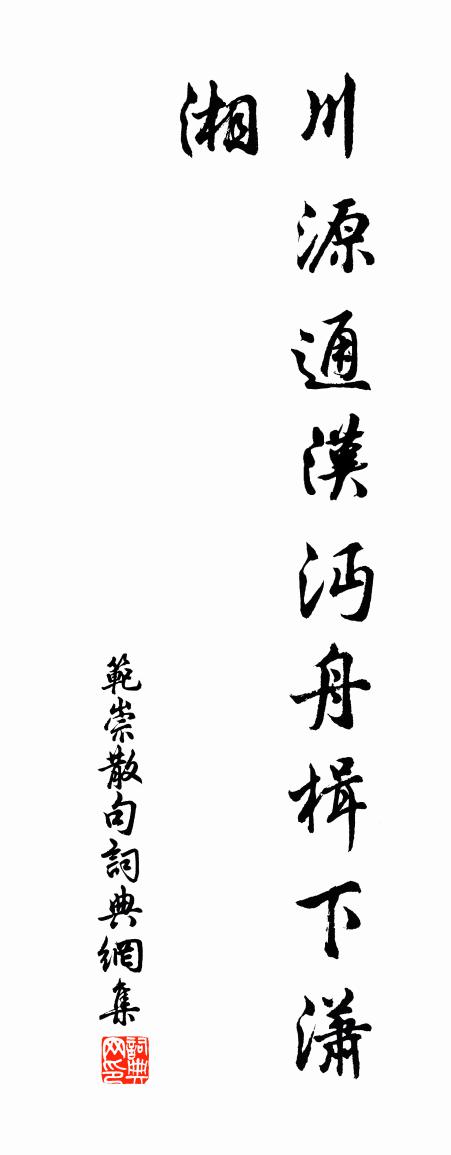 川源通漢沔舟楫下瀟
湘
範崇散句詞典網集
詞典
网印